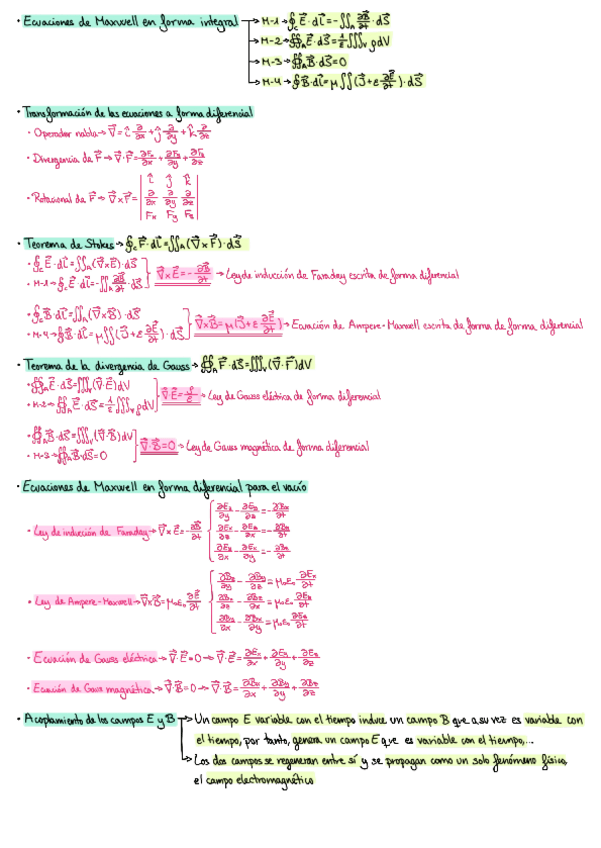 · Ecuaciones de Maxwell en forma integral → M-1 → ∮c E⃗·dl⃗ = -∬ ∂B⃗/∂t · dS⃗
→ M-2 → ∯A E⃗·dS⃗ = 1/ε ∭v ρdV
→ M-3 → ∯A B⃗·dS⃗ = 0
→ M-4 → ∮ B⃗·dl⃗ = μ∬(J⃗ + ε ∂E⃗/∂t)·dS⃗
· Transformación de las ecuaciones a forma diferencial
· Operador nabla → ∇⃗ = î ∂/∂x + ĵ ∂/∂y + k̂ ∂/∂z
· Divergencia de F⃗ → ∇⃗·F⃗ = ∂Fx/∂x + ∂Fy/∂y + ∂Fz/∂z
· Rotacional de F⃗ → ∇⃗×F⃗ = | î ĵ k̂ |
| ∂/∂x ∂/∂y ∂/∂z |
| Fx Fy Fz |
· Teorema de Stokes → ∮c F⃗·dl⃗ = ∬A (∇⃗×F⃗)·dS⃗
· ∮c E⃗·dl⃗ = ∬A (∇⃗×E⃗)·dS⃗
· M-1 → ∮c E⃗·dl⃗ = -∬A ∂B⃗/∂t · dS⃗ ] ∇⃗×E⃗ = -∂B⃗/∂t → Ley de inducción de Faraday escrita de forma diferencial
· ∮c B⃗·dl⃗ = ∬A (∇⃗×B⃗)·dS⃗
· M-4 → ∮ B⃗·dl⃗ = μ∬(J⃗ + ε ∂E⃗/∂t)·dS⃗ ] ∇⃗×B⃗ = μ(J⃗ + ε ∂E⃗/∂t) → Ecuación de Ampere-Maxwell escrita de forma de forma diferencial
· Teorema de la divergencia de Gauss → ∯A F⃗·dS⃗ = ∭v (∇⃗·F⃗)dV
· ∯A E⃗·dS⃗ = ∭v (∇⃗·E⃗)dV
· M-2 → ∯A E⃗·dS⃗ = 1/ε ∭v ρdV ] ∇⃗E⃗ = ρ/ε → Ley de Gauss eléctrica de forma diferencial
· ∯A B⃗·dS⃗ = ∭v (∇⃗·B⃗)dV
· M-3 → ∯A B⃗·dS⃗ = 0 ] ∇⃗·B⃗ = 0 → Ley de Gauss magnética de forma diferencial
· Ecuaciones de Maxwell en forma diferencial para el vacío
· Ley de inducción de Faraday → ∇⃗×E⃗ = -∂B⃗/∂t
· Ley de Ampere-Maxwell → ∇⃗×B⃗ = μ₀ε₀ ∂E⃗/∂t
· Ecuación de Gauss eléctrica → ∇⃗·E⃗ = 0 → ∇⃗·E⃗ = ∂Ex/∂x + ∂Ey/∂y + ∂Ez/∂z
· Ecuación de Gauss magnética → ∇⃗·B⃗ = 0 → ∇⃗·B⃗ = ∂Bx/∂x + ∂By/∂y + ∂Bz/∂z
· Acoplamiento de los campos E y B → Un campo E variable con el tiempo induce un campo B que a su vez es variable con
el tiempo, por tanto, genera un campo E que es variable con el tiempo,...
→ Los dos campos se regeneran entre sí y se propagan como un solo fenómeno físico,
el campo electromagnético